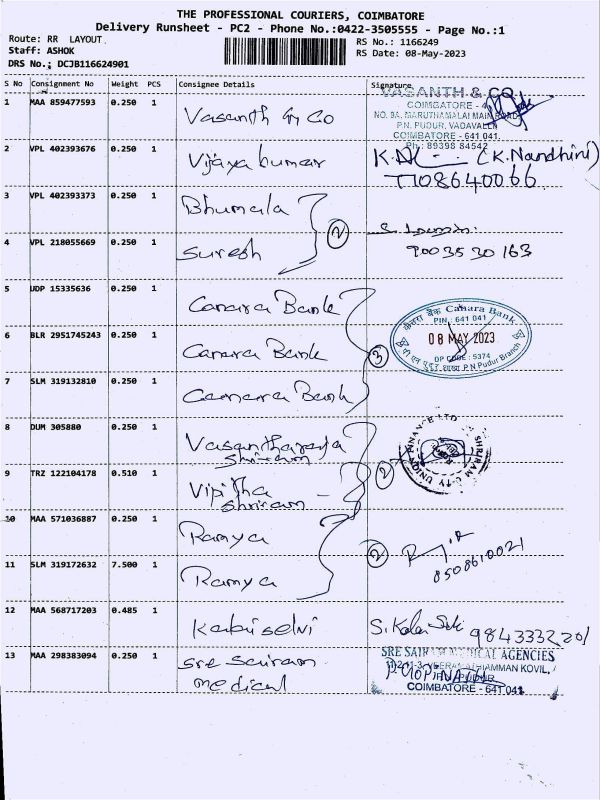 THE PROFESSIONAL COURIERS, COIMBATORE
Delivery Runsheet - PC2 - Phone No.:0422-3505555 - Page No.:1
Route: RR LAYOUT
RS No.: 1166249
Staff: ASHOK
RS Date: 08-May-2023
DRS No.: DCJB116624901
S No Consignment No Weight PCS Consignee Details Signature
1 MAA 859477593 0.250 1 Vasanth & Co
VASANTH & CO
COIMBATORE - 4
NO. 9A, MARUTHAMALAI MAIN ROAD
P.N. PUDUR, VADAVALLI
COIMBATORE - 641 041.
Ph: 89398 84542
2 VPL 402393676 0.250 1 Vijaya kumar (K.Nandhini)
7108640066
3 VPL 402393373 0.250 1 Bhumala
2
4 VPL 218055669 0.250 1 Suresh
9003530163
5 UDP 15335636 0.250 1 Canara Bank
केनरा बैंक Canara Bank
PIN : 641 041
08 MAY 2023
DP CODE : 5374
शाखा P N Pudur Branch
6 BLR 2951745243 0.250 1 Canara Bank
3
7 SLM 319132810 0.250 1 Canara Bank
8 DUM 305880 0.250 1 Vasantharaja
Shriram
SHRIRAM CITY UNION FINANCE LTD
2
9 TRZ 122104178 0.510 1 Vipitha
Shriram
10 MAA 571036887 0.250 1 Ramya
2
8508610021
11 SLM 319172632 7.500 1 Ramya
12 MAA 568717203 0.485 1 Kalaiselvi
9843332201
13 MAA 298383094 0.250 1 Sre Sairam
medical
SRE SAIRAM MEDICAL AGENCIES
COIMBATORE - 641 041